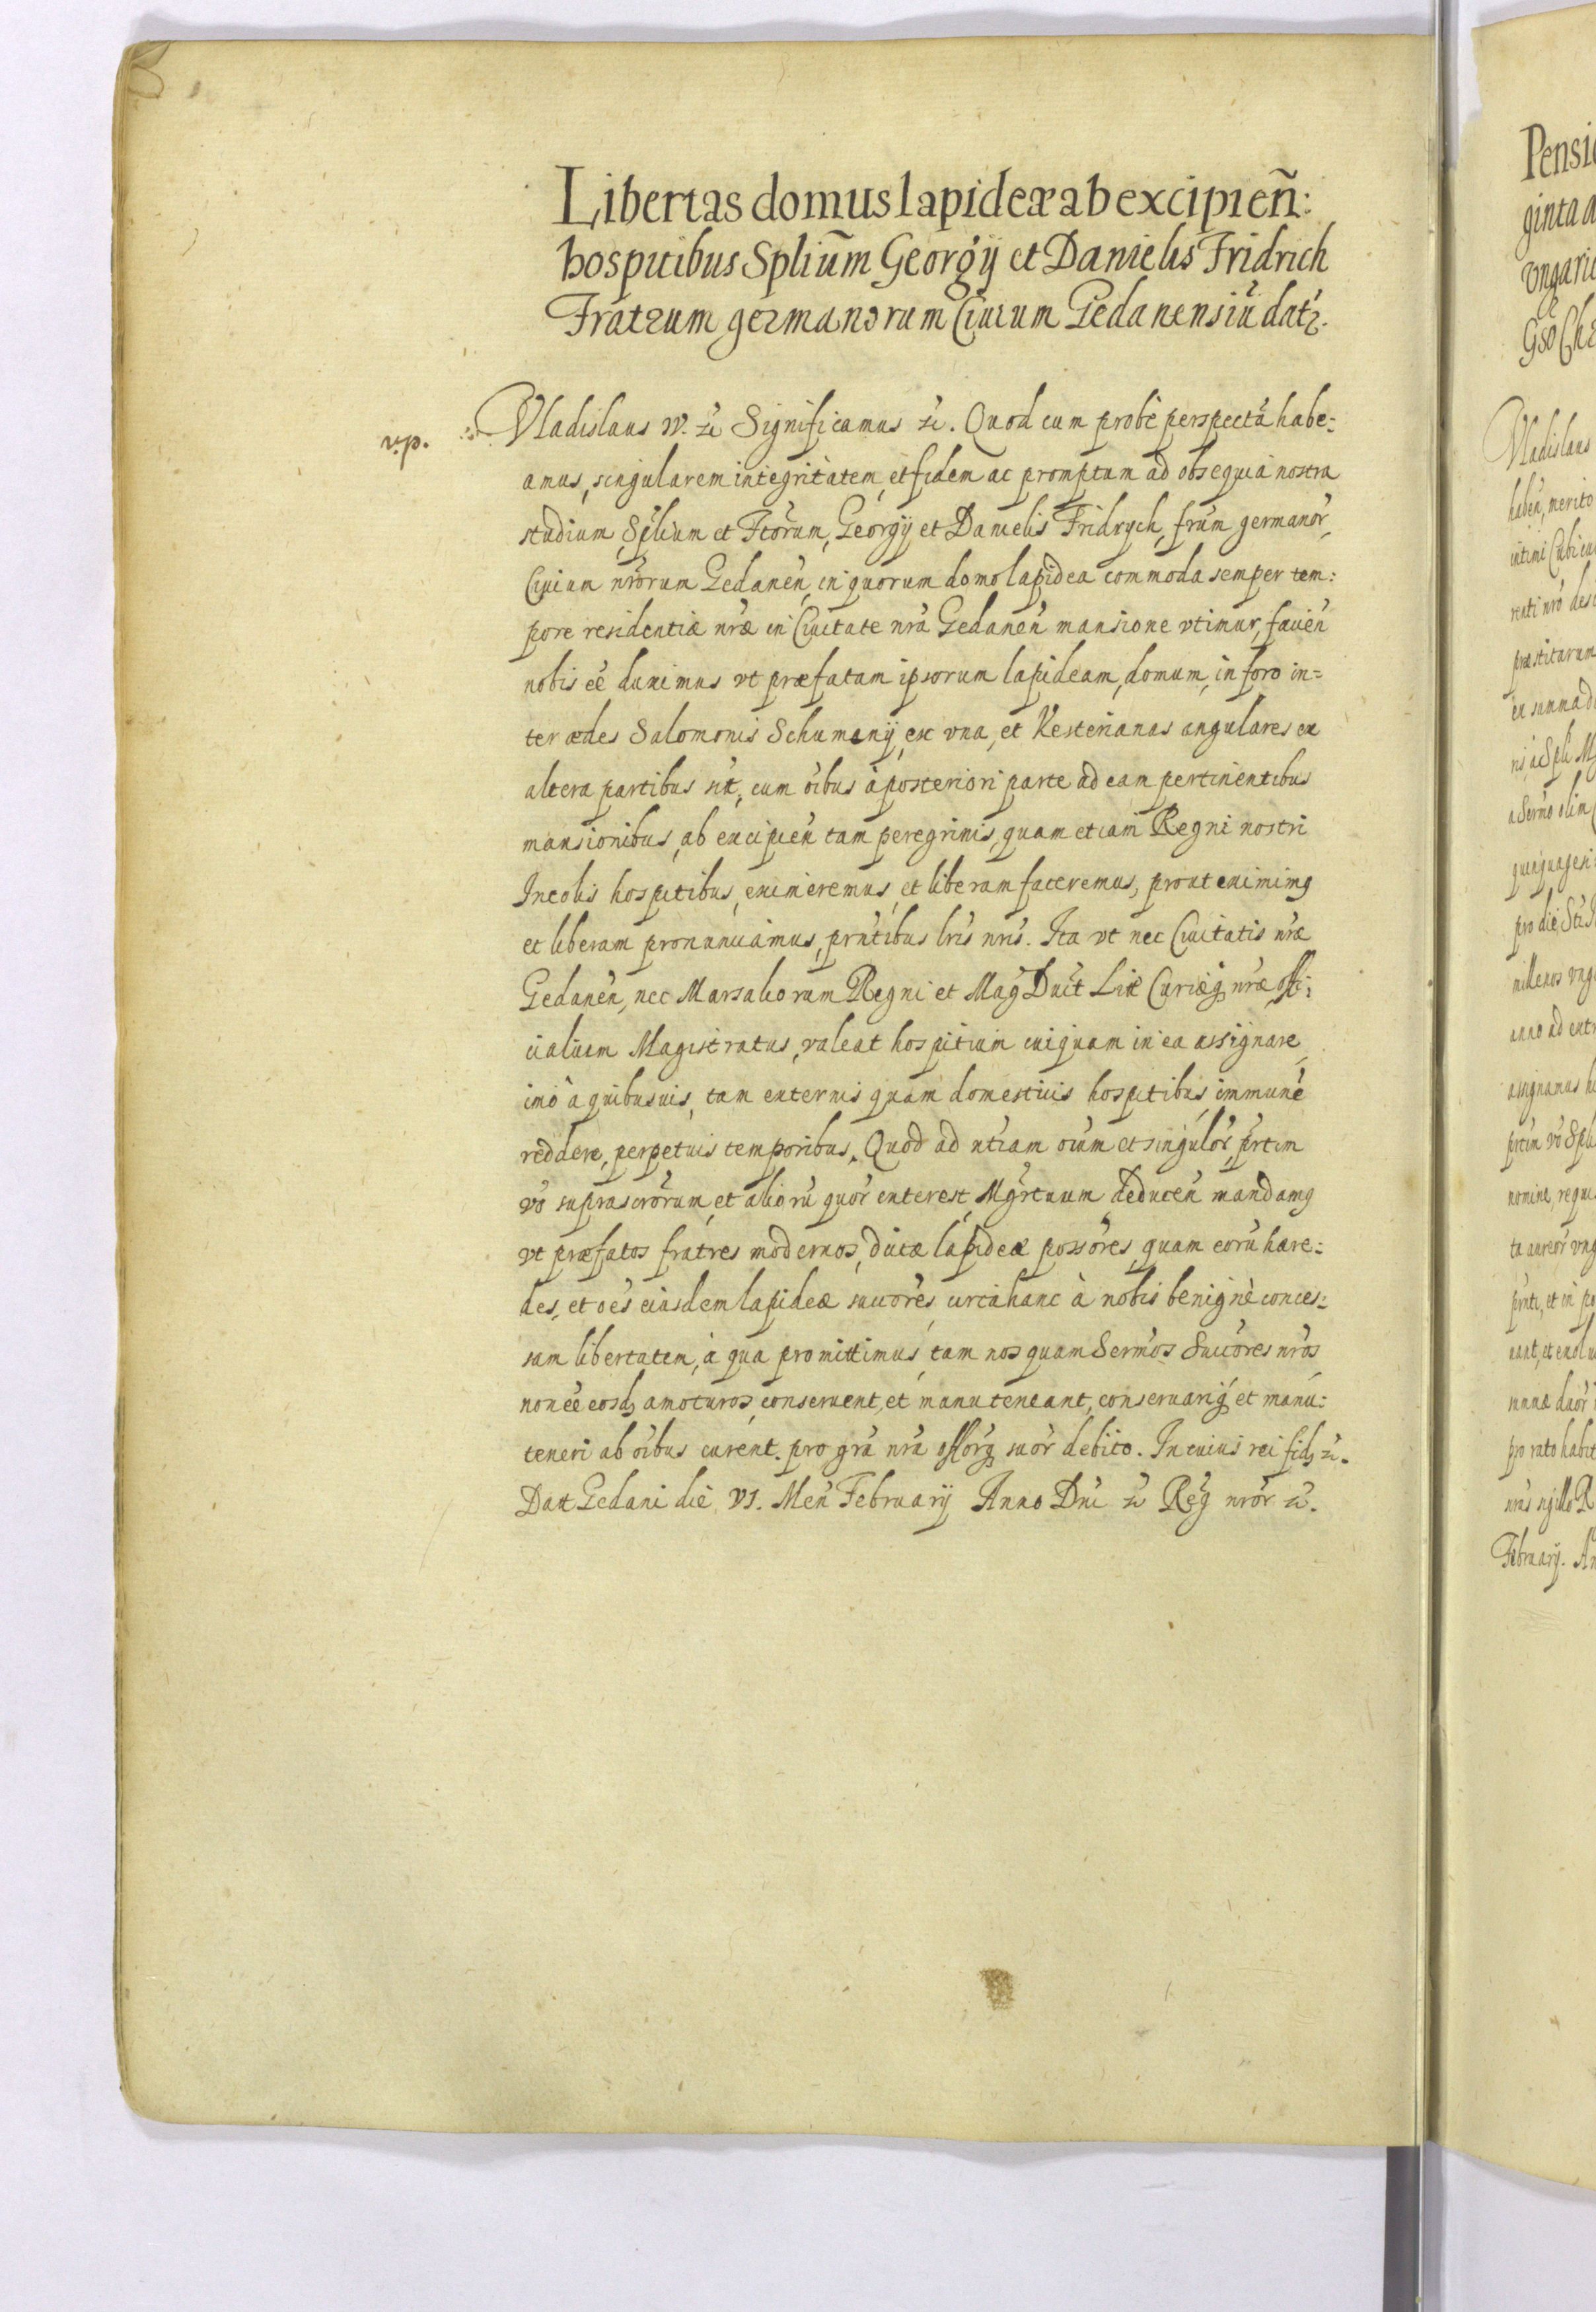 Libertas domus lapideæ ab excipien̄:
hospitibus Spliūm Georgÿ et Danielis Fridrich
Fratrum germanorum Ciuium Gedanensiū datr.
v.p. Vladislaus IV. etc Significamus etc. Quod cum probè perspectā habe=
amus, singularem integritatem, et fidem ac promptum ad obsequia nostra
studium, Splium et Ftorum, Georgÿ et Danielis Fridrych, frūm germanor,
Ciuium nrorum Gedanen̄, in quorum domo lapidea commoda semper tem:
pore residentiæ nræ in Ciuitate nrā Gedanen̄ mansione vtimur, faciēn
nobis eē duximus vt præfatam ipsorum lapideam, domum, in foro in=
ter ædes Salomonis Schumanÿ, ex vna, et Kesterianas angulares ex
altera partibus sit, cum oībus à posteriori parte ad eam pertinentibus
mansionibus, ab excipien̄ tam peregrinis, quam etiam Regni nostri
Incolis hospitibus, eximeremus, et liberam faceremus, prout eximimq
et liberam pronunciamus, prntibus lris nris. Ita vt nec Ciuitatis nræ
Gedanen̄, nec Marsalcorum Regni et Mag Duct Litt Curiæq nræ offi:
cialium Magistratus, valeat hospitium cuiquam in ea assignare,
imò à quibusuis, tam externis quam domesticis hospitibus, immunē
reddere, perpetuis temporibus. Quod ad ntiam oium et singulor, prtim
vo suprascrorum, et aliorū quor interest, Mgrtuum deducen̄ mandamq
vt præfatos fratres modernos, dictæ lapideæ possores, quam eorū hære:
des, et oēs eiusdem lapideæ succores, circa hanc à nobis benignè conces:
sam libertatem, à qua promittimus, tam nos quam Sermos Succores nros
non eē eosdq amoturos, conseruent, et manuteneant, conseruariq et manu:
teneri ab oībus curent. pro grā nrā offorq suor debito. In cuius rei fidq etc.
Datt Gedani die VI. Men̄ Februarÿ Anno Dni etc Reg nror etc.